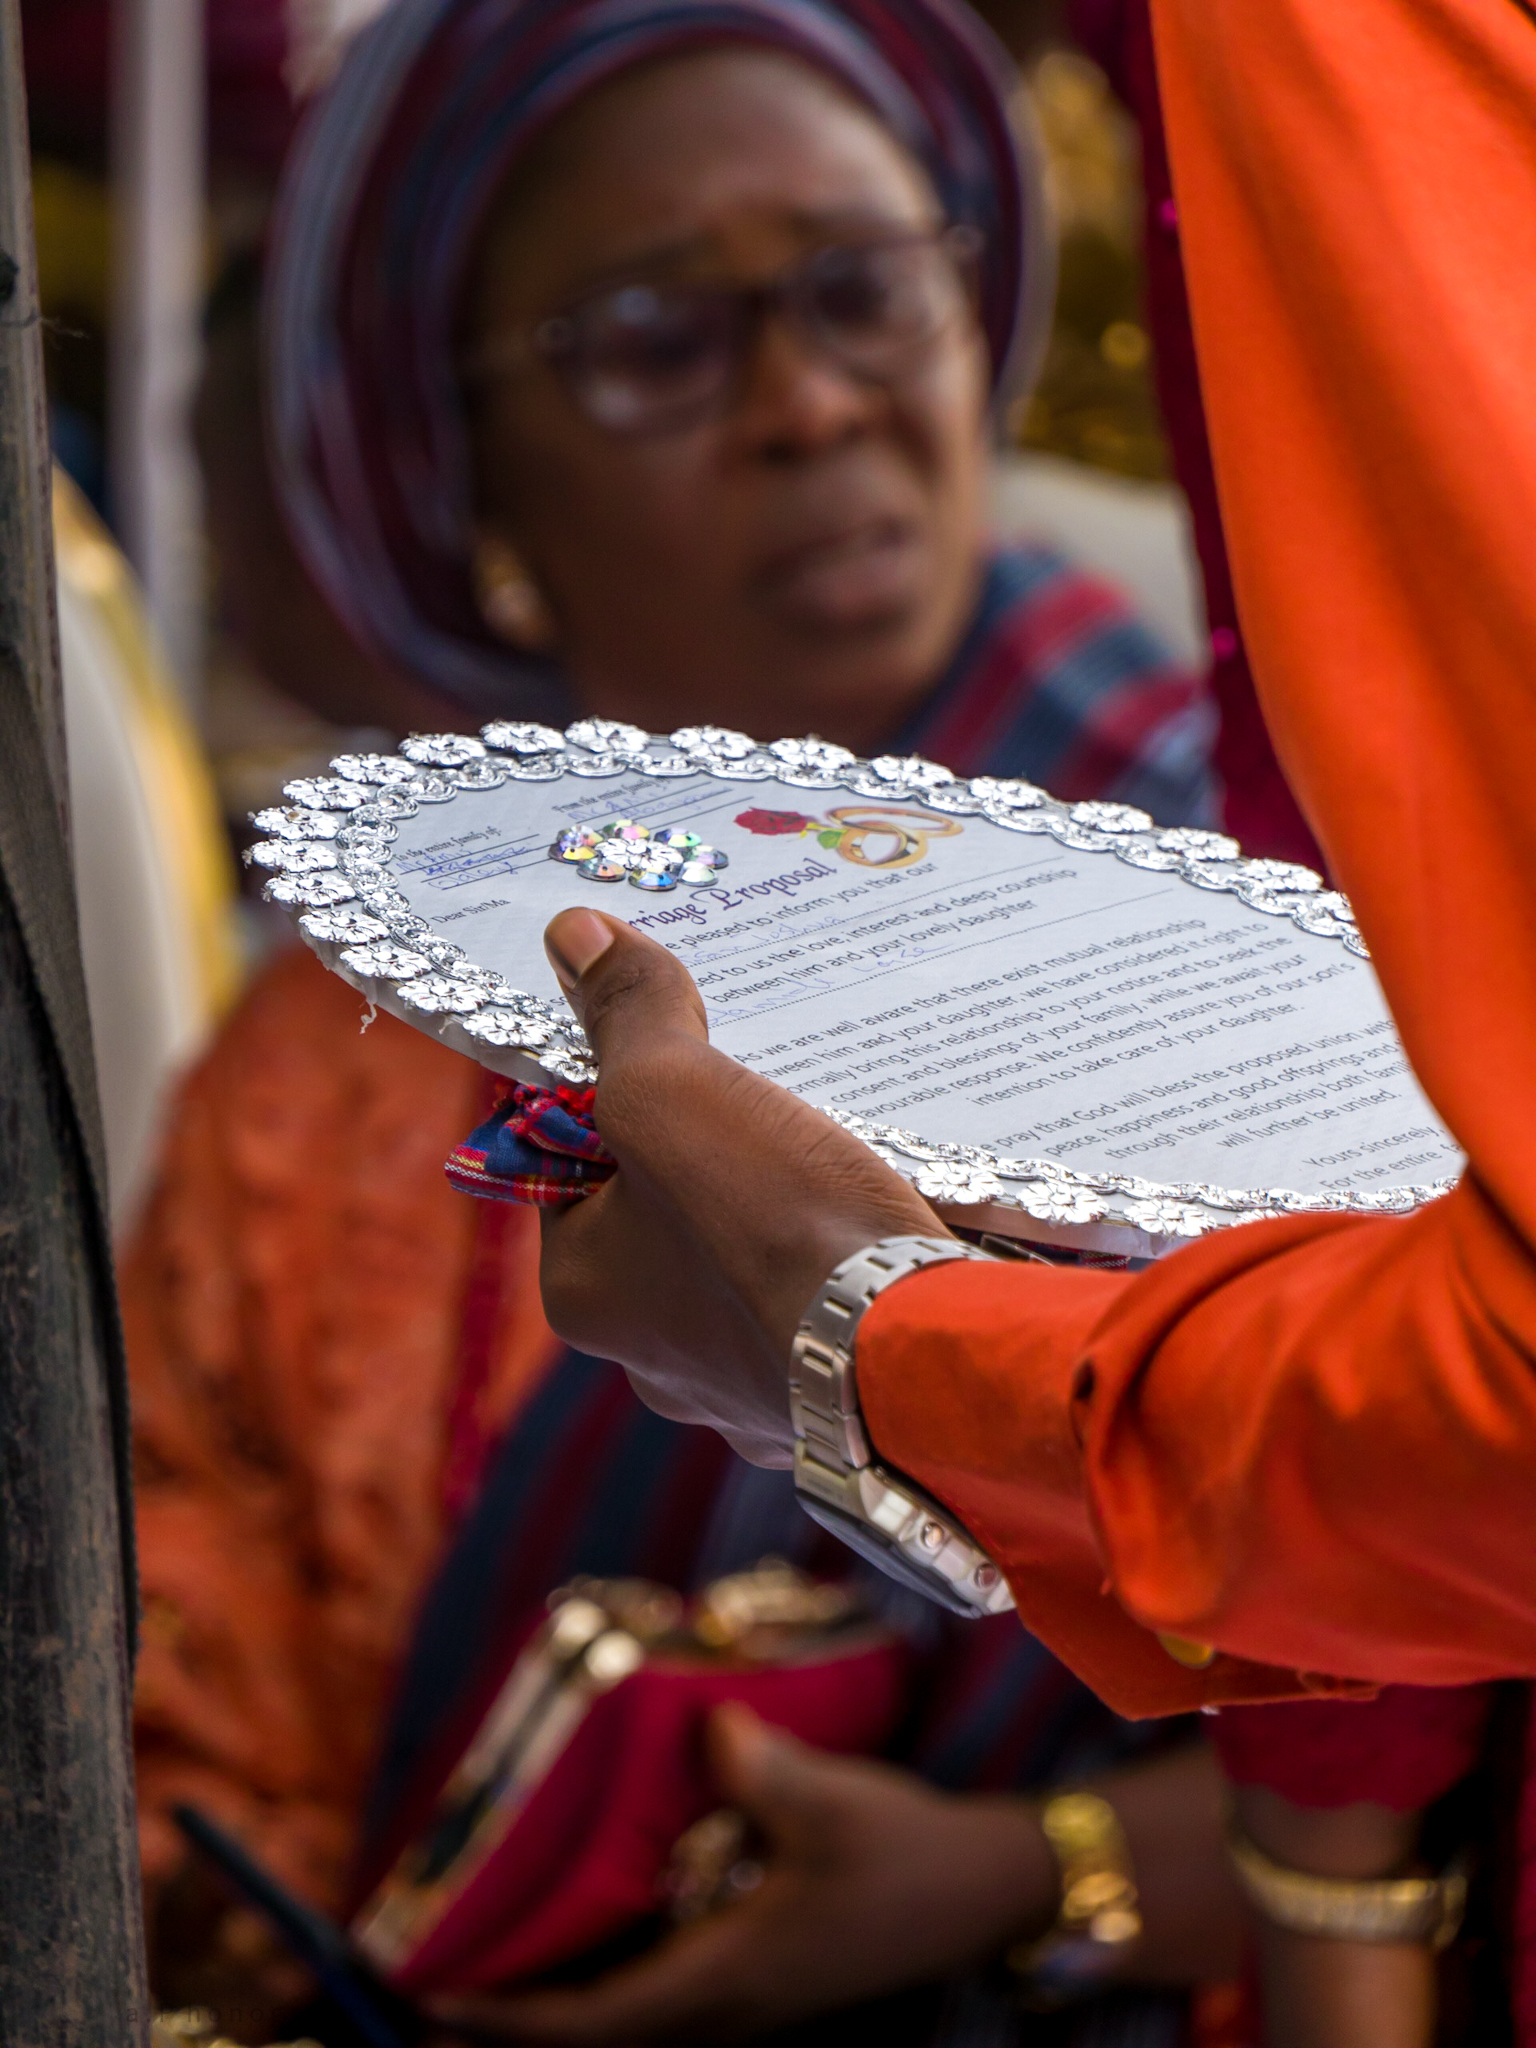 To the entire family of:
From the entire family
Dear Sir/Ma
Marriage Proposal
e pleased to inform you that our
sed to us the love, interest and deep courtship
between him and your lovely daughter
As we are well aware that there exist mutual relationship
tween him and your daughter, we have considered it right to
ormally bring this relationship to your notice and to seek the
consent and blessings of your family, while we await your
favourable response. We confidently assure you of our son's
intention to take care of your daughter.
e pray that God will bless the proposed union with
peace, happiness and good offsprings and
through their relationship both fami
will further be united.
Yours sincerely,
For the entire fa